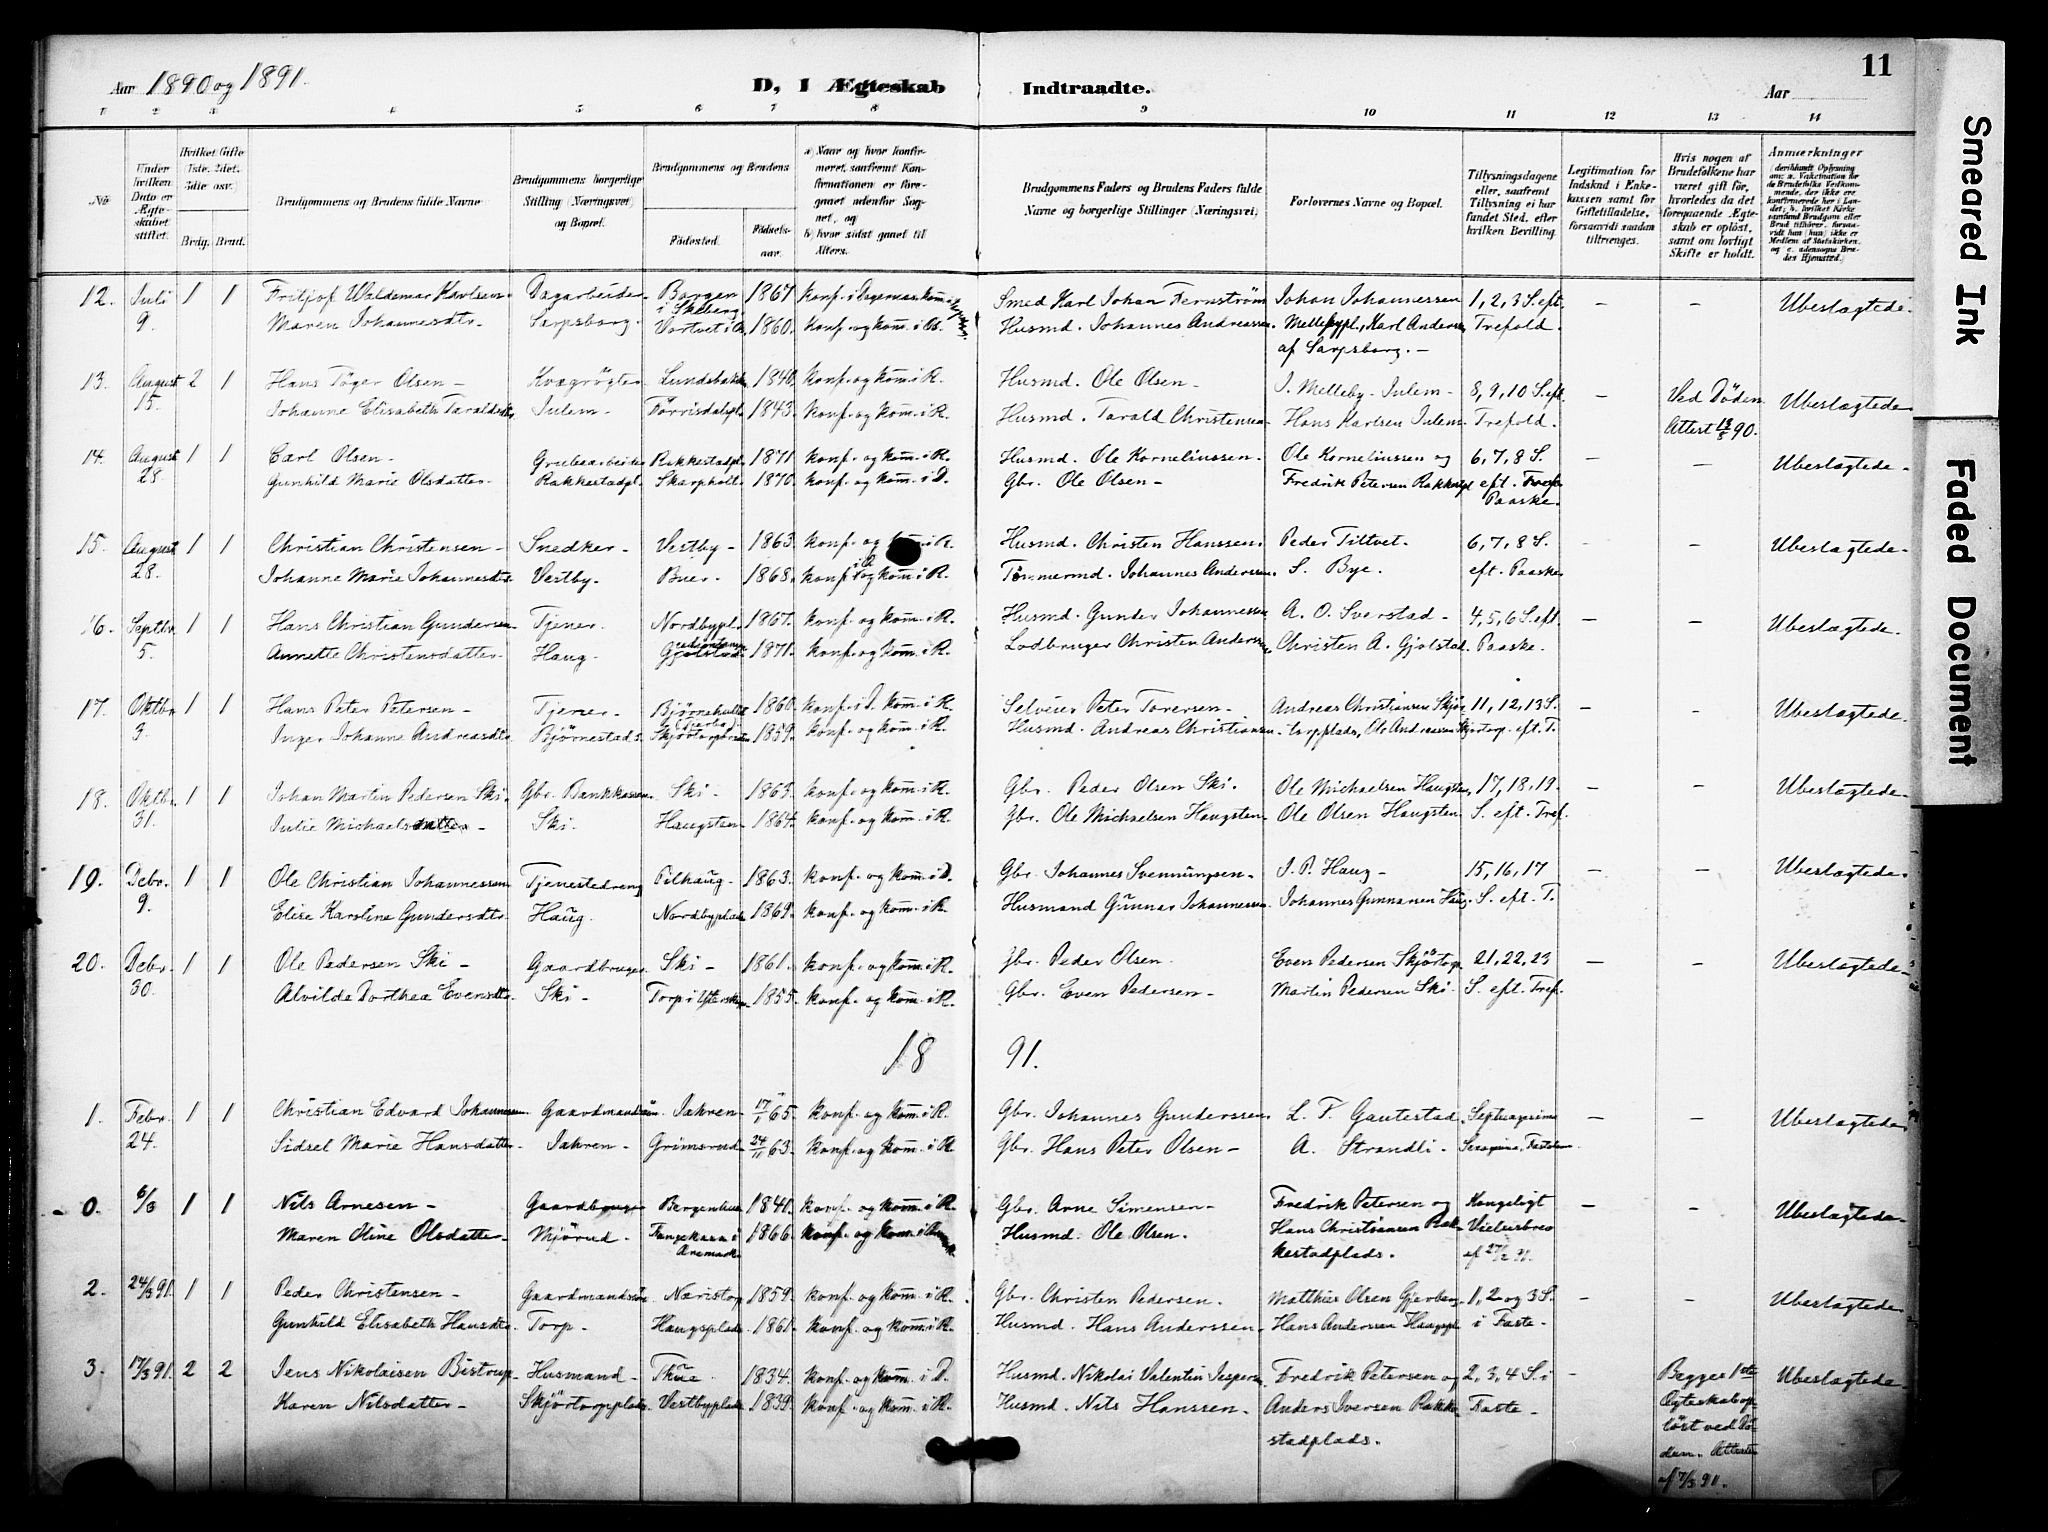 Aar 1890 og 1891.
D, 1 Ægteskab Indtraadte.
Aar
11
1 2 3 4 5 6 7 8 9 10 11 12 13 14
No
Under hvilken Dato er Ægteskabet stiftet.
Hvilket Gifte (1ste. 2det. 3die osv.)
Brdg. Brud.
Brudgommens og Brudens fulde Navne
Brudgommens borgerlige Stilling (Næringsvei) og Bopæl.
Brudgommens og Brudens
Fødested.
Fødselsaar.
a) Naar og hvor konfirmeret, saafremt Konfirmationen er foregaaet udenfor Sognet, og
b) hvor sidst gaaet til Alters.
Brudgommens Faders og Brudens Faders fulde Navne og borgerlige Stillinger (Næringsvei)
Forlovernes Navne og Bopæl.
Tillysningsdagene eller, saafremt Tillysning ei har fundet Sted, efter hvilken Bevilling
Legitimation for Indskud i Enkekassen samt for Giftetilladelse, forsaavidt saadan tiltrænges.
Hvis nogen af Brudefolkene har været gift før, hvorledes da det foregaaende Ægteskab er opløst, samt om lovligt Skifte er holdt.
Anmærkninger
12. Juli 9. 1 1 Fritjof Waldemar Karlsen Dagarbeider Borgen i Skiberg 1867 Smed Karl Johan Fernstrøm Johan Johannessen 1, 2, 3 S. eft. – – Ubeslægtede.
Maren Johannesdtr. Sarpsborg. 1860. Konf. og kom. i Husmd. Johannes Andreassen. Karl Andersen Trefold.
af Sarpsborg. –
13. August 15. 2 1 Hans Töger Olsen – Kvægrögter 1840. Konf. og kom. i R. Husmd. Ole Olsen – J. Melleby Julem – 8, 9, 10 S. eft. – Ved Döden Ubeslægtede
Johanne Elisabeth Taraldsdtr. Julem – 1843. Konf. og kom. i R. Husmd. Tarald Christensen Hans Karlsen Julem. Trefold. Attest 90.
14. August 28. 1 1 Carl Olsen – Grubearbeider Rakkestadpl. 1871 Konf. og kom. i R. Husmd. Ole Korneliussen – Ole Korneliussen og 6, 7, 8 S. – – Ubeslægtede –
Gunhild Marie Olsdatter – Rakkestadpl. Skarpholt 1870. Konf. og kom. i D. Gbr. Ole Olsen – Fredrik Petersen eft.
Paaske.
15. August 28. 1 1 Christian Christensen – Snedker – Vestby – 1863. Konf. og i R. Husmd. Christen Hanssen. Peder Tiltvet. 6, 7, 8 S. – – Ubeslægtede –
Johanne Marie Johannesdtr. Vestby. Buer – 1868. Konf. og kom. i R. Tømmermd. Johannes Anderssen. S. Bye. eft. Paaske
16. Septbr. 5. 1 1 Hans Christian Gundersen Tjener. Nordbypl. 1867. Konf. og kom. i R. Husmd. Gunder Johannessen A. O. Sverstad – 4, 5, 6 S. eft. – – Ubeslægtede.
Annette Christensdatter – Haug – Gjølstad 1871. Konf. og kom. i R. Lodbruger Christen Anderssen Christen A. Gjølstad. Paaske.
17. Oktbr. 3. 1 1 Hans Peter Petersen – Tjener – 1860. Konf. i D. kom. i R. Selveier Peter Toresen – Andreas Christiansen 11, 12, 13 S. – – Ubeslægtede.
Inger Johanne Andreasdtr. Bjørnestad 1859. Konf. og kom. i R. Husmd. Andreas Christiansen – torpplads, Ole Andreassen Skjørtorp. eft. T.
18. Oktbr. 31. 1 1 Johan Martin Pedersen Ski. Gbr. Bankkasser. Ski – 1863. Konf. og kom. i R. Gbr. Peder Olsen Ski. Ole Michaelsen Haugsten, 17, 18, 19. – – Ubeslægtede.
Julie Michaelsdatter – Ski. Haugsten 1864. Konf. og kom. i R. Gbr. Ole Michaelsen Haugsten – Ole Olsen Haugsten. S. eft. Tref.
19. Debr. 9. 1 1 Ole Christian Johannessen Tjenestedreng Pilhaug – 1863. Konf. og kom. i D. Gbr. Johannes Svennungsen – J. P. Haug – 15, 16, 17 – – Ubeslægtede.
Elise Karoline Gundersdtr. Haug. Nordbyplads 1869. Konf. og kom. i R. Husmand Gunnar Johannessen Johannes Gunnarsen Haug. S. eft. T.
20. Debr. 30. 1 1 Ole Pedersen Ski – Gaardbruger Ski – 1861. Konf. og kom. i R. Gbr. Peder Olsen. Even Pedersen Skjørtorp. 21, 22, 23 – – Ubeslægtede –
Alvilde Dorthea Evensdtr. Ski – Torp i 1855. Konf. og kom. i R. Gbr. Even Pedersen – Martin Pedersen Ski. S. eft. Tref.
18 91.
1. Febr. 24. 1 1 Christian Edvard Johannessen Gaardmandsøn Jahren 17/1 65. Konf. og kom. i R. Gbr. Johannes Gunderssen L. F. Gautestad. Septuagesima – – Ubeslægtede
Sidsel Marie Hansdatter – Jahren – Grimsrud 24/11 63. Konf. og kom. i R. Gbr. Hans Peter Olsen – A. Strandli –
0. 6/3 1 1 Nils Arnesen – Gaardbruger 1841. Konf. og kom. i R. Gbr. Arne Simensen – Fredrik Petersen og Kongeligt – – Ubeslægtede
Maren Oline Olsdatter – Mjørud. i Aremark 1866. Konf. og kom. i Husmd. Ole Olsen. Hans Christiansen Rak- Vielsesbrev
kestadplads. af 27/2 91.
2. 24/3 91. 1 1 Peder Christensen – Gaardmandsøn Næristorp 1859. Konf. og kom. i R. Gbr. Christen Pedersen. Matthias Olsen Gjerberg. 1, 2 og 3 S. – – Ubeslægtede
Gunhild Elisabeth Hansdtr. Torp – Haugsplads 1861. Konf. og kom. i R. Husmd. Hans Anderssen – Hans Anderssen Haugspl. i Faste –
3. 17/3 91. 2 2 Jens Nikolaisen Bistrup Husmand – Thue 1834. Konf. og kom. i D. Husmd. Nikolai Valentin Jespersen Fredrik Petersen og 2, 3, 4 S. i – Begges 1ste Ubeslægtede.
Karen Nilsdatter – Skjørtorpplads Vestbyplads 1839. Konf. og kom. i R. Husmd. Nils Hanssen – Anders Iversen Rakke- Faste – Ægteskab op-
stadplads. løst ved Dö-
den. Attester
af 7/3 91.
Smeared Ink
Faded Document